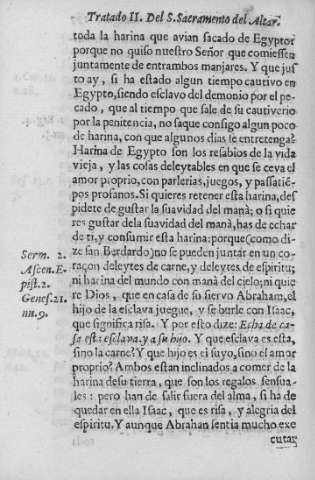 Tratado II. Del S. Sacramento del Altar.
toda la harina que avian sacado de Egypto:
porque no quiso nuestro Señor que comiessen
juntamente de entrambos manjares. Y que jus-
to ay, si ha estado algun tiempo cautivo en
Egypto, siendo esclavo del demonio por el pe-
cado, que al tiempo que sale de su cautiverio
por la penitencia, no saque consigo algun poco
de harina, con que algunos dias le entretenga?
Harina de Egypto son los resabios de la vida
vieja, y las cosas deleytables en que se ceva el
amor proprio, con parlerias, juegos, y passatiē-
pos profanos. Si quieres retener esta harina, des
pidete de gustar la suavidad del manà; o si quie
res gustar dela suavidad del manà, has de echar
de ti, y consumir esta harina: porque (como di-
ze san Bernardo) no se pueden juntar en un co-
raçon deleytes de carne, y deleytes de espiritu;
ni harina del mundo con manà del cielo; ni quie
re Dios, que en casa de su siervo Abraham, el
hijo de la esclava juegue, y se burle con Isaac,
que significa risa. Y por esto dize: Echa de ca-
sa esta esclava, y a su hijo. Y que esclava es esta,
sino la carne? Y que hijo es el suyo, sino el amor
proprio? Ambos estan inclinados a comer de la
harina de su tierra, que son los regalos sensua-
les: pero han de salir fuera del alma, si ha de
quedar en ella Isaac, que es risa, y alegria del
espiritu. Y aunque Abrahan sentia mucho exe
cutar
Serm. 2.
Ascen. E-
pist. 2.
Genes. 21.
nn. 9.